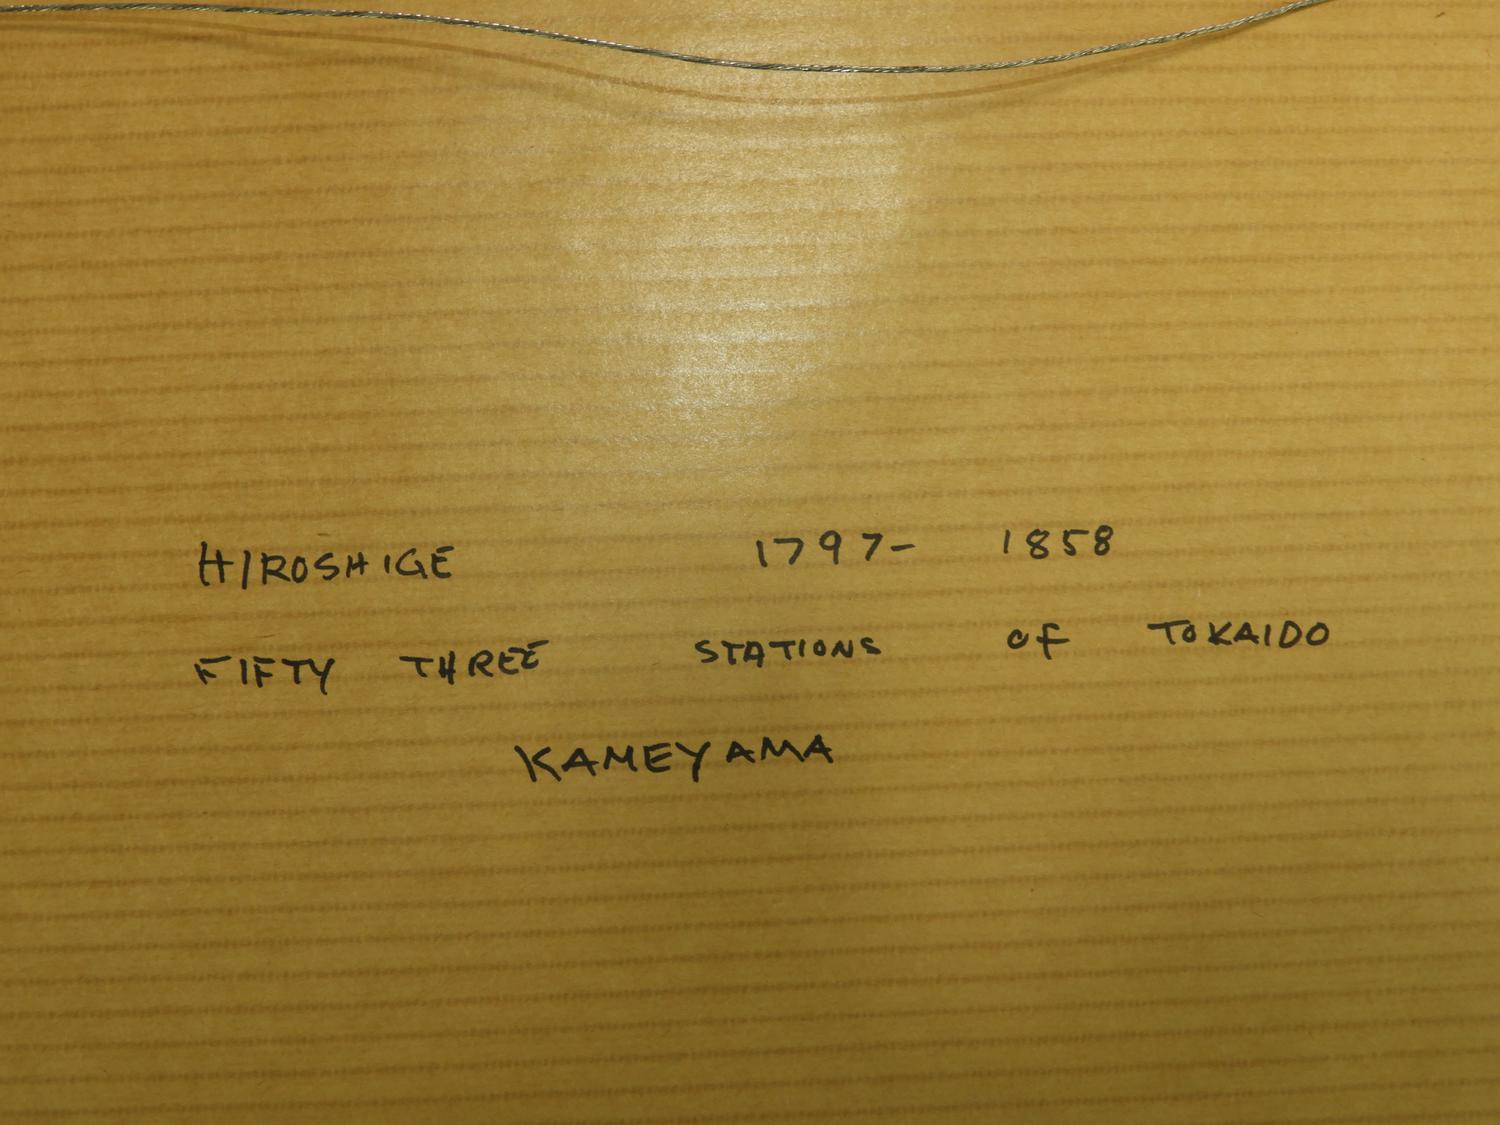 HIROSHIGE 1797- 1858
FIFTY THREE STATIONS of TOKAIDO
KAMEYAMA